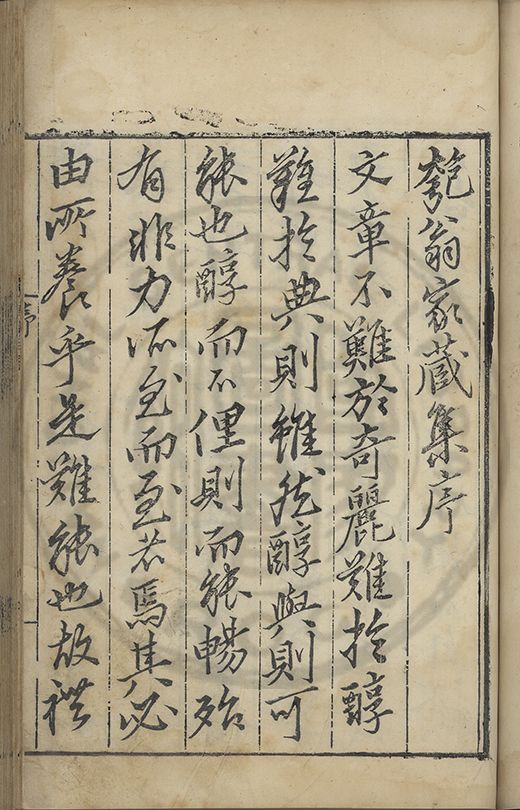 匏翁家藏集序
文章不難於奇麗難於醇
難於典則雖然醇與則可
能也醇而不俚則而能暢殆
有非力所至而至者焉其必
由所養乎是難能也故禮
序